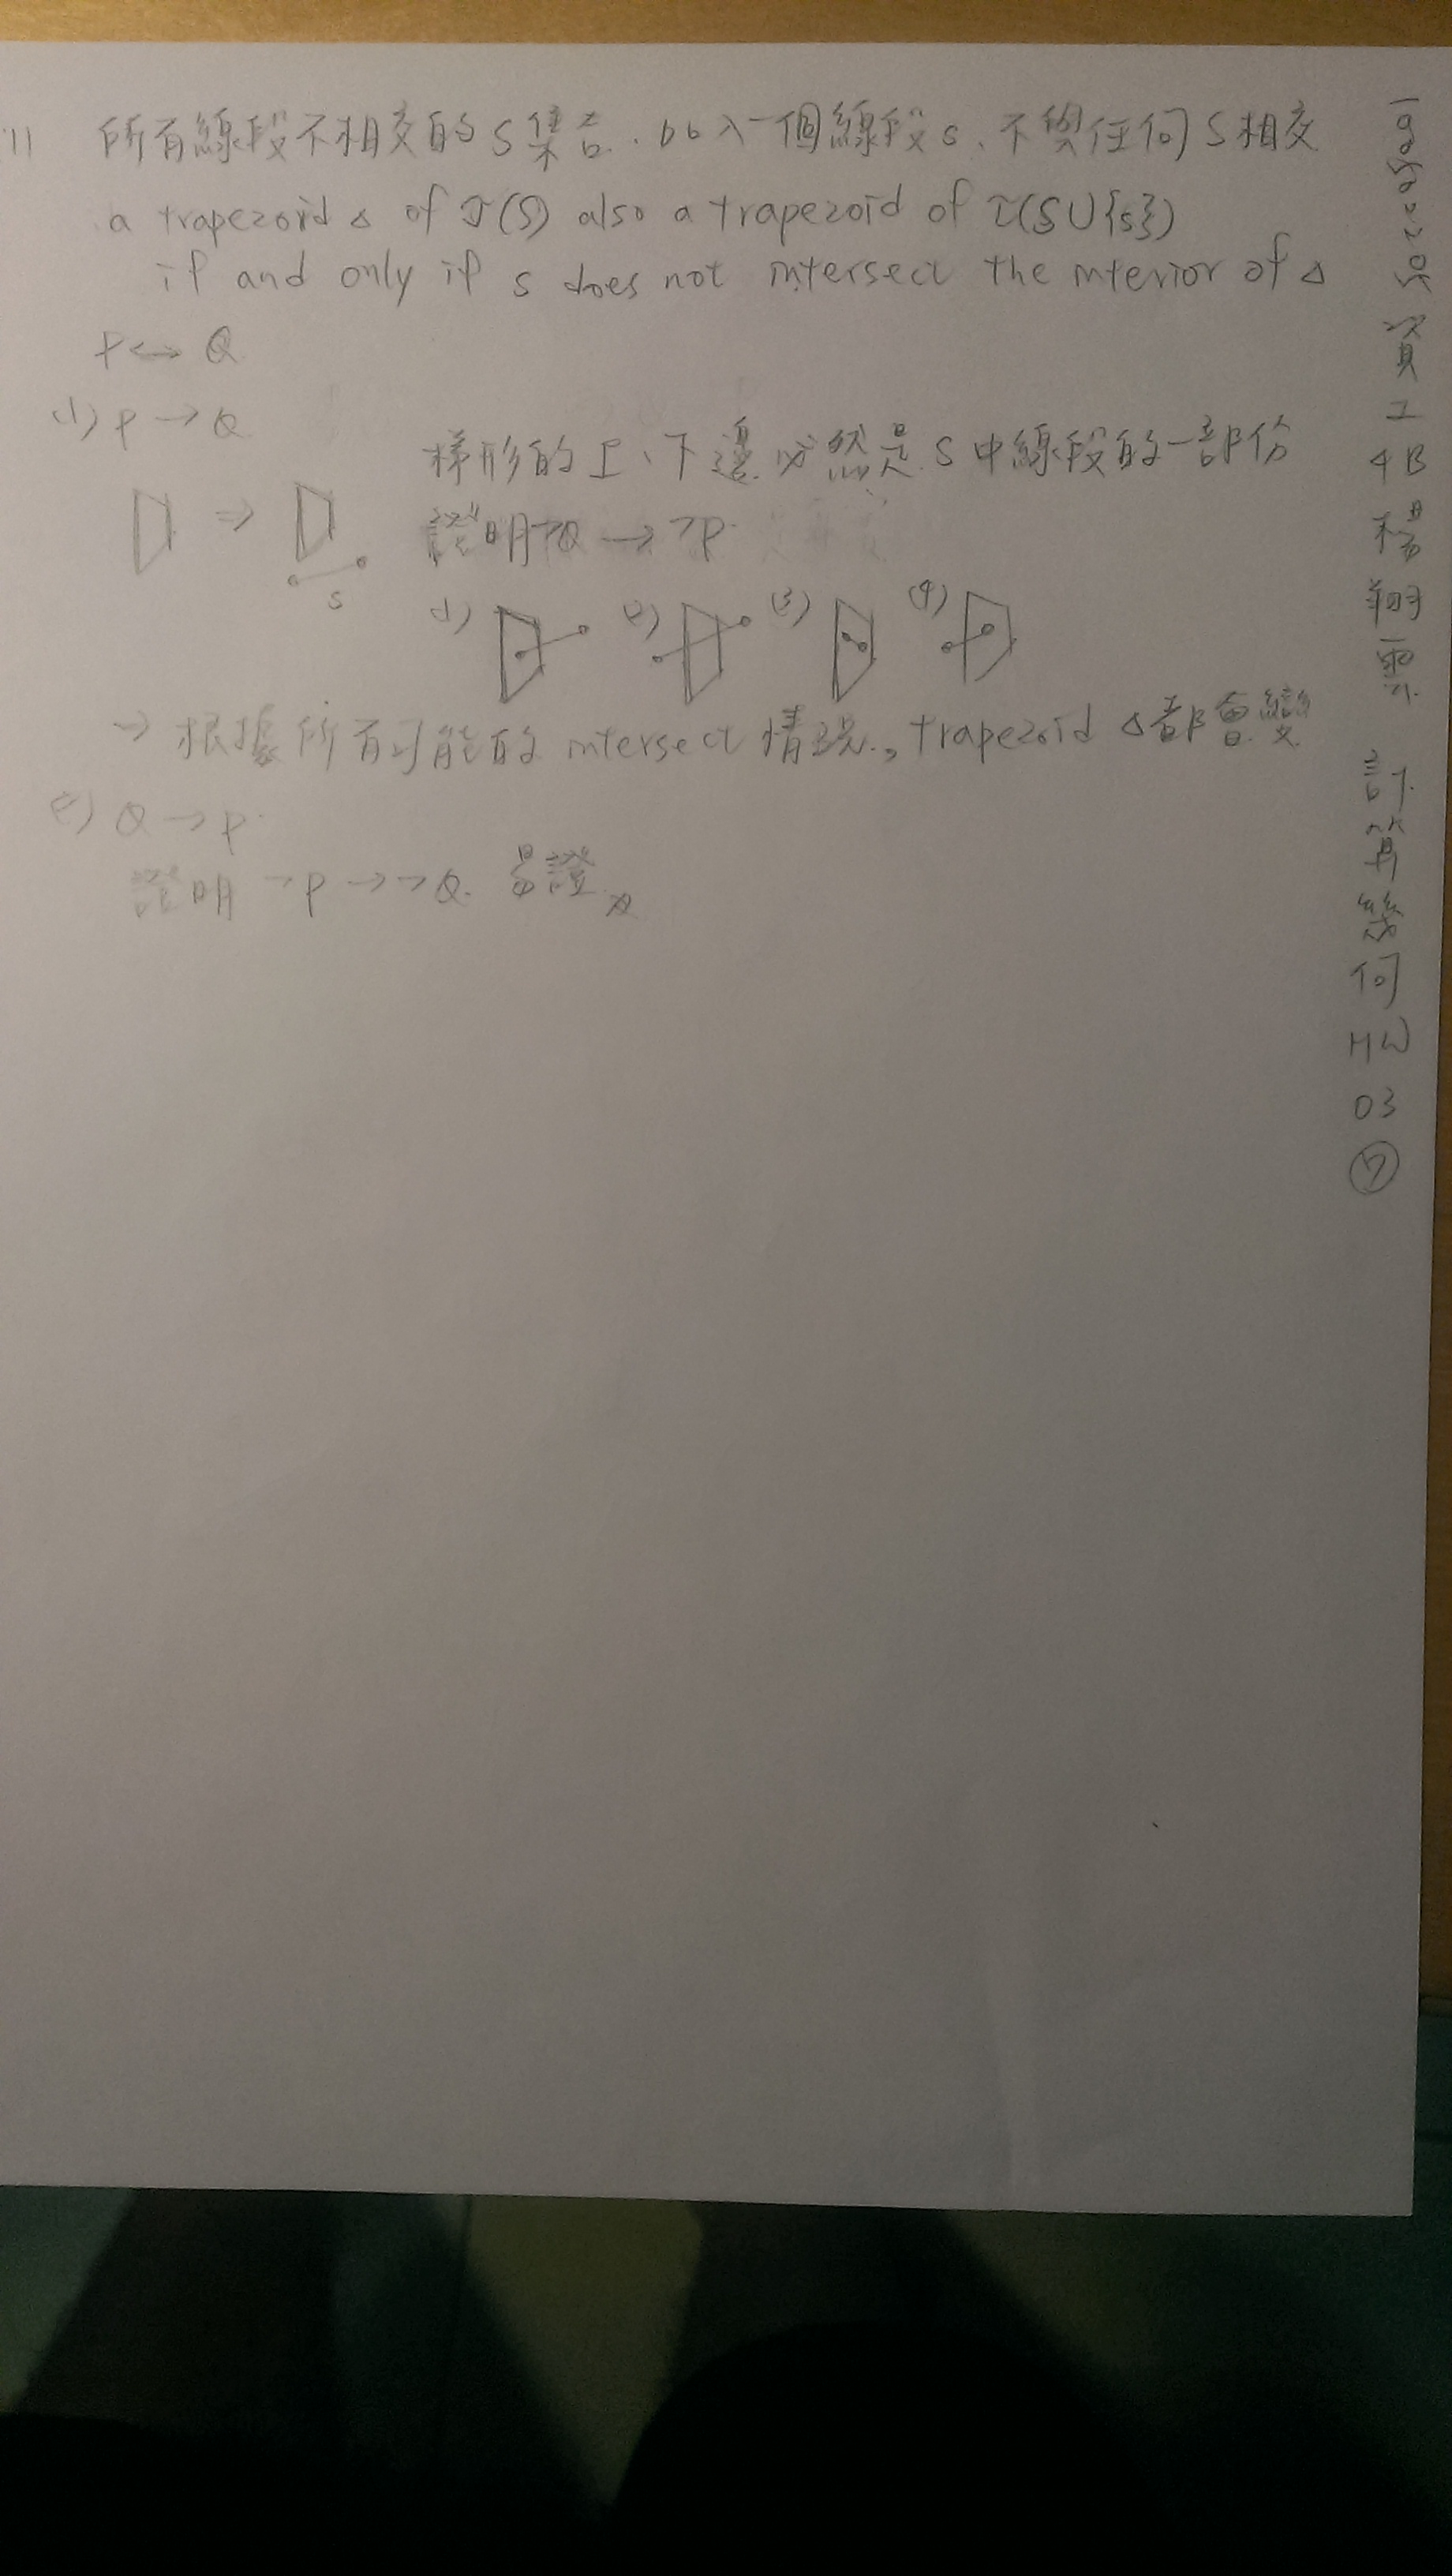 11 所有線段不相交的S集合.加入一個線段s、不與任何S相交
a trapezoid Δ of T(S) also a trapezoid of T(S∪{s})
if and only if s does not intersect the interior of Δ
P↔Q
(1) P→Q
梯形的上、下邊必然是S中線段的一部份
⇒ 證明¬Q→¬P
s
(1) (2) (3) (4)
→ 根據所有可能的intersect情況, trapezoid Δ都會變
(2) Q→P
證明 ¬P→¬Q. 易證
資工4B 楊翔雲 計算幾何 HW 03 ⑦